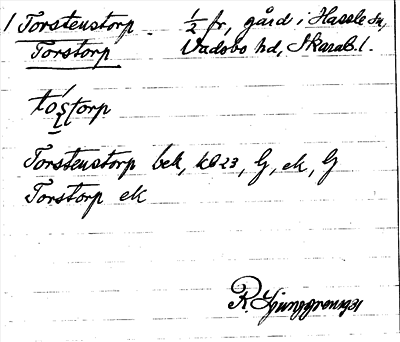 1 Torstenstorp. 1/2 fr, gård i Hassle sn,
Torstorp Vadsbo hd, Skarab. l.
tóstorp
Torstenstorp bek, KB 23, G, ek, G
Torstorp ek
R. Ljunggren 1931